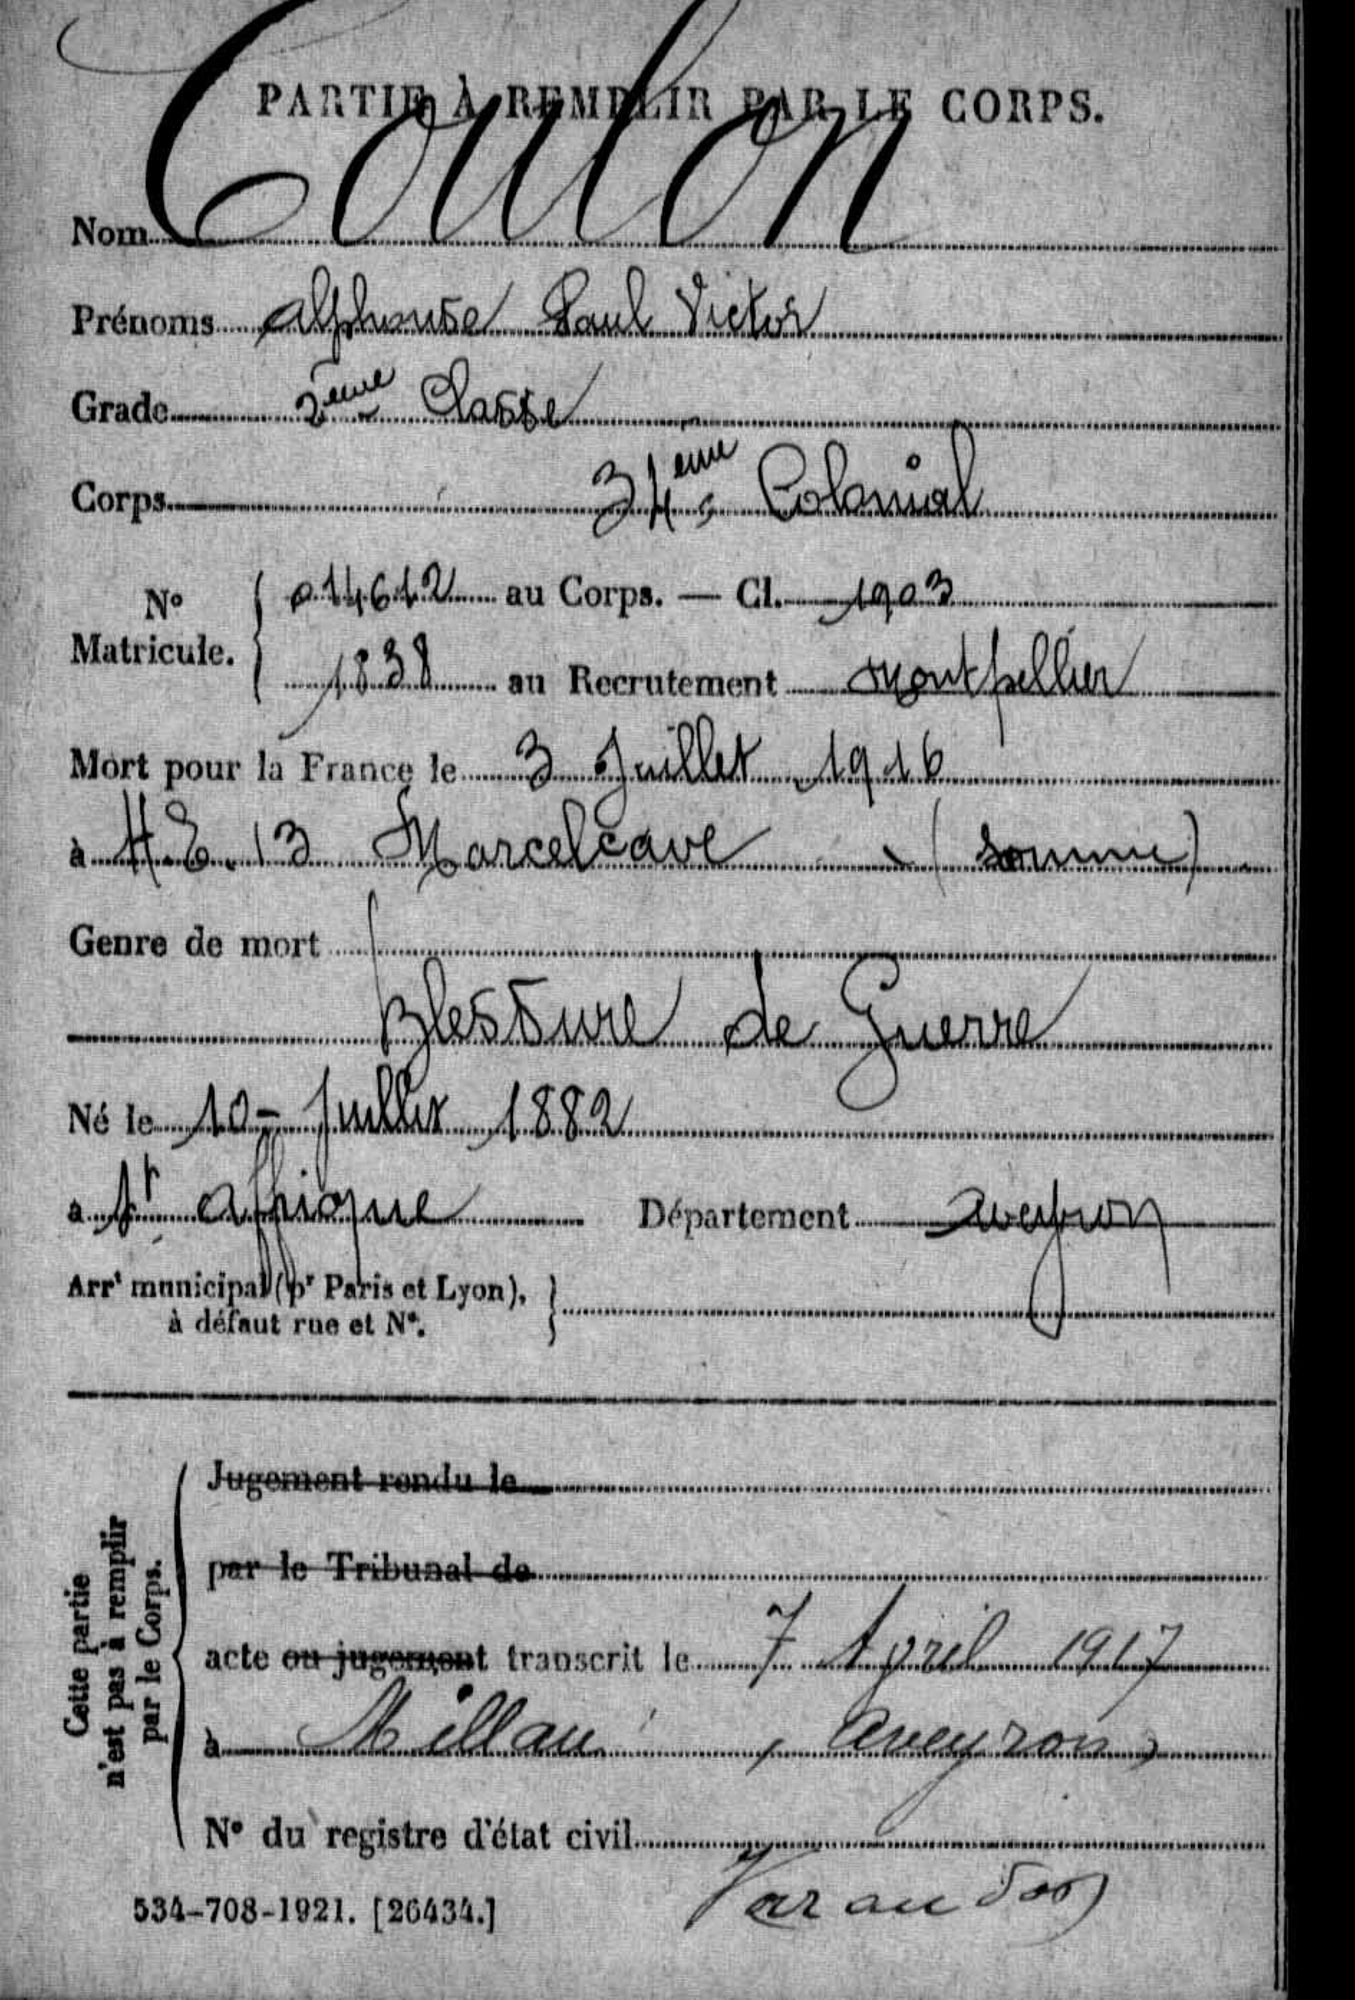 PARTIE À REMPLIR PAR LE CORPS.
Nom Coulon
Prénoms Alphonse Paul Victor
Grade 2ème Classe
Corps 34ème Colonial
N° Matricule. 014612 au Corps. — Cl. 1903
1838 au Recrutement Montpellier
Mort pour la France le 3 Juillet 1916
à H.E. 13 Marcelcave (Somme)
Genre de mort
Blessure de Guerre
Né le 10 - Juillet 1882
à St Affrique Département Aveyron
Arrt municipal (pr Paris et Lyon),
à défaut rue et N°.
Cette partie
n'est pas à remplir
par le Corps.
Jugement rendu le
par le Tribunal de
acte ou jugement transcrit le 7 April 1917
à Millau, Aveyron
N° du registre d'état civil
534-708-1921. [26434.]